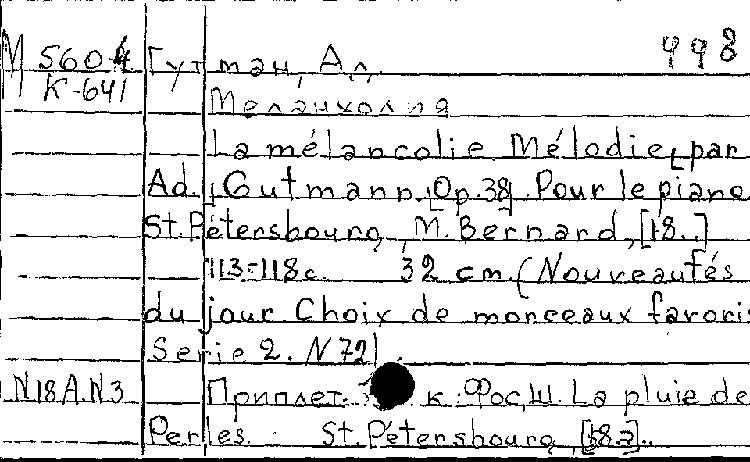 М 5604 Гутман, Ад. 998
К-641
Меланхолия
La mélancolie Mélodie, par
Ad. Gutmann. [Op. 38]. Pour le piano
St. Pétersbourg, M. Bernard, [18..]
113-118 с. 32 cm. (Nouveautés
du jour Choix de morceaux favoris
Serie 2. N 72).
N18A.N3 Приплет. к Фос, Ш. La pluie de
Perles. St. Pétersbourg, [18..].